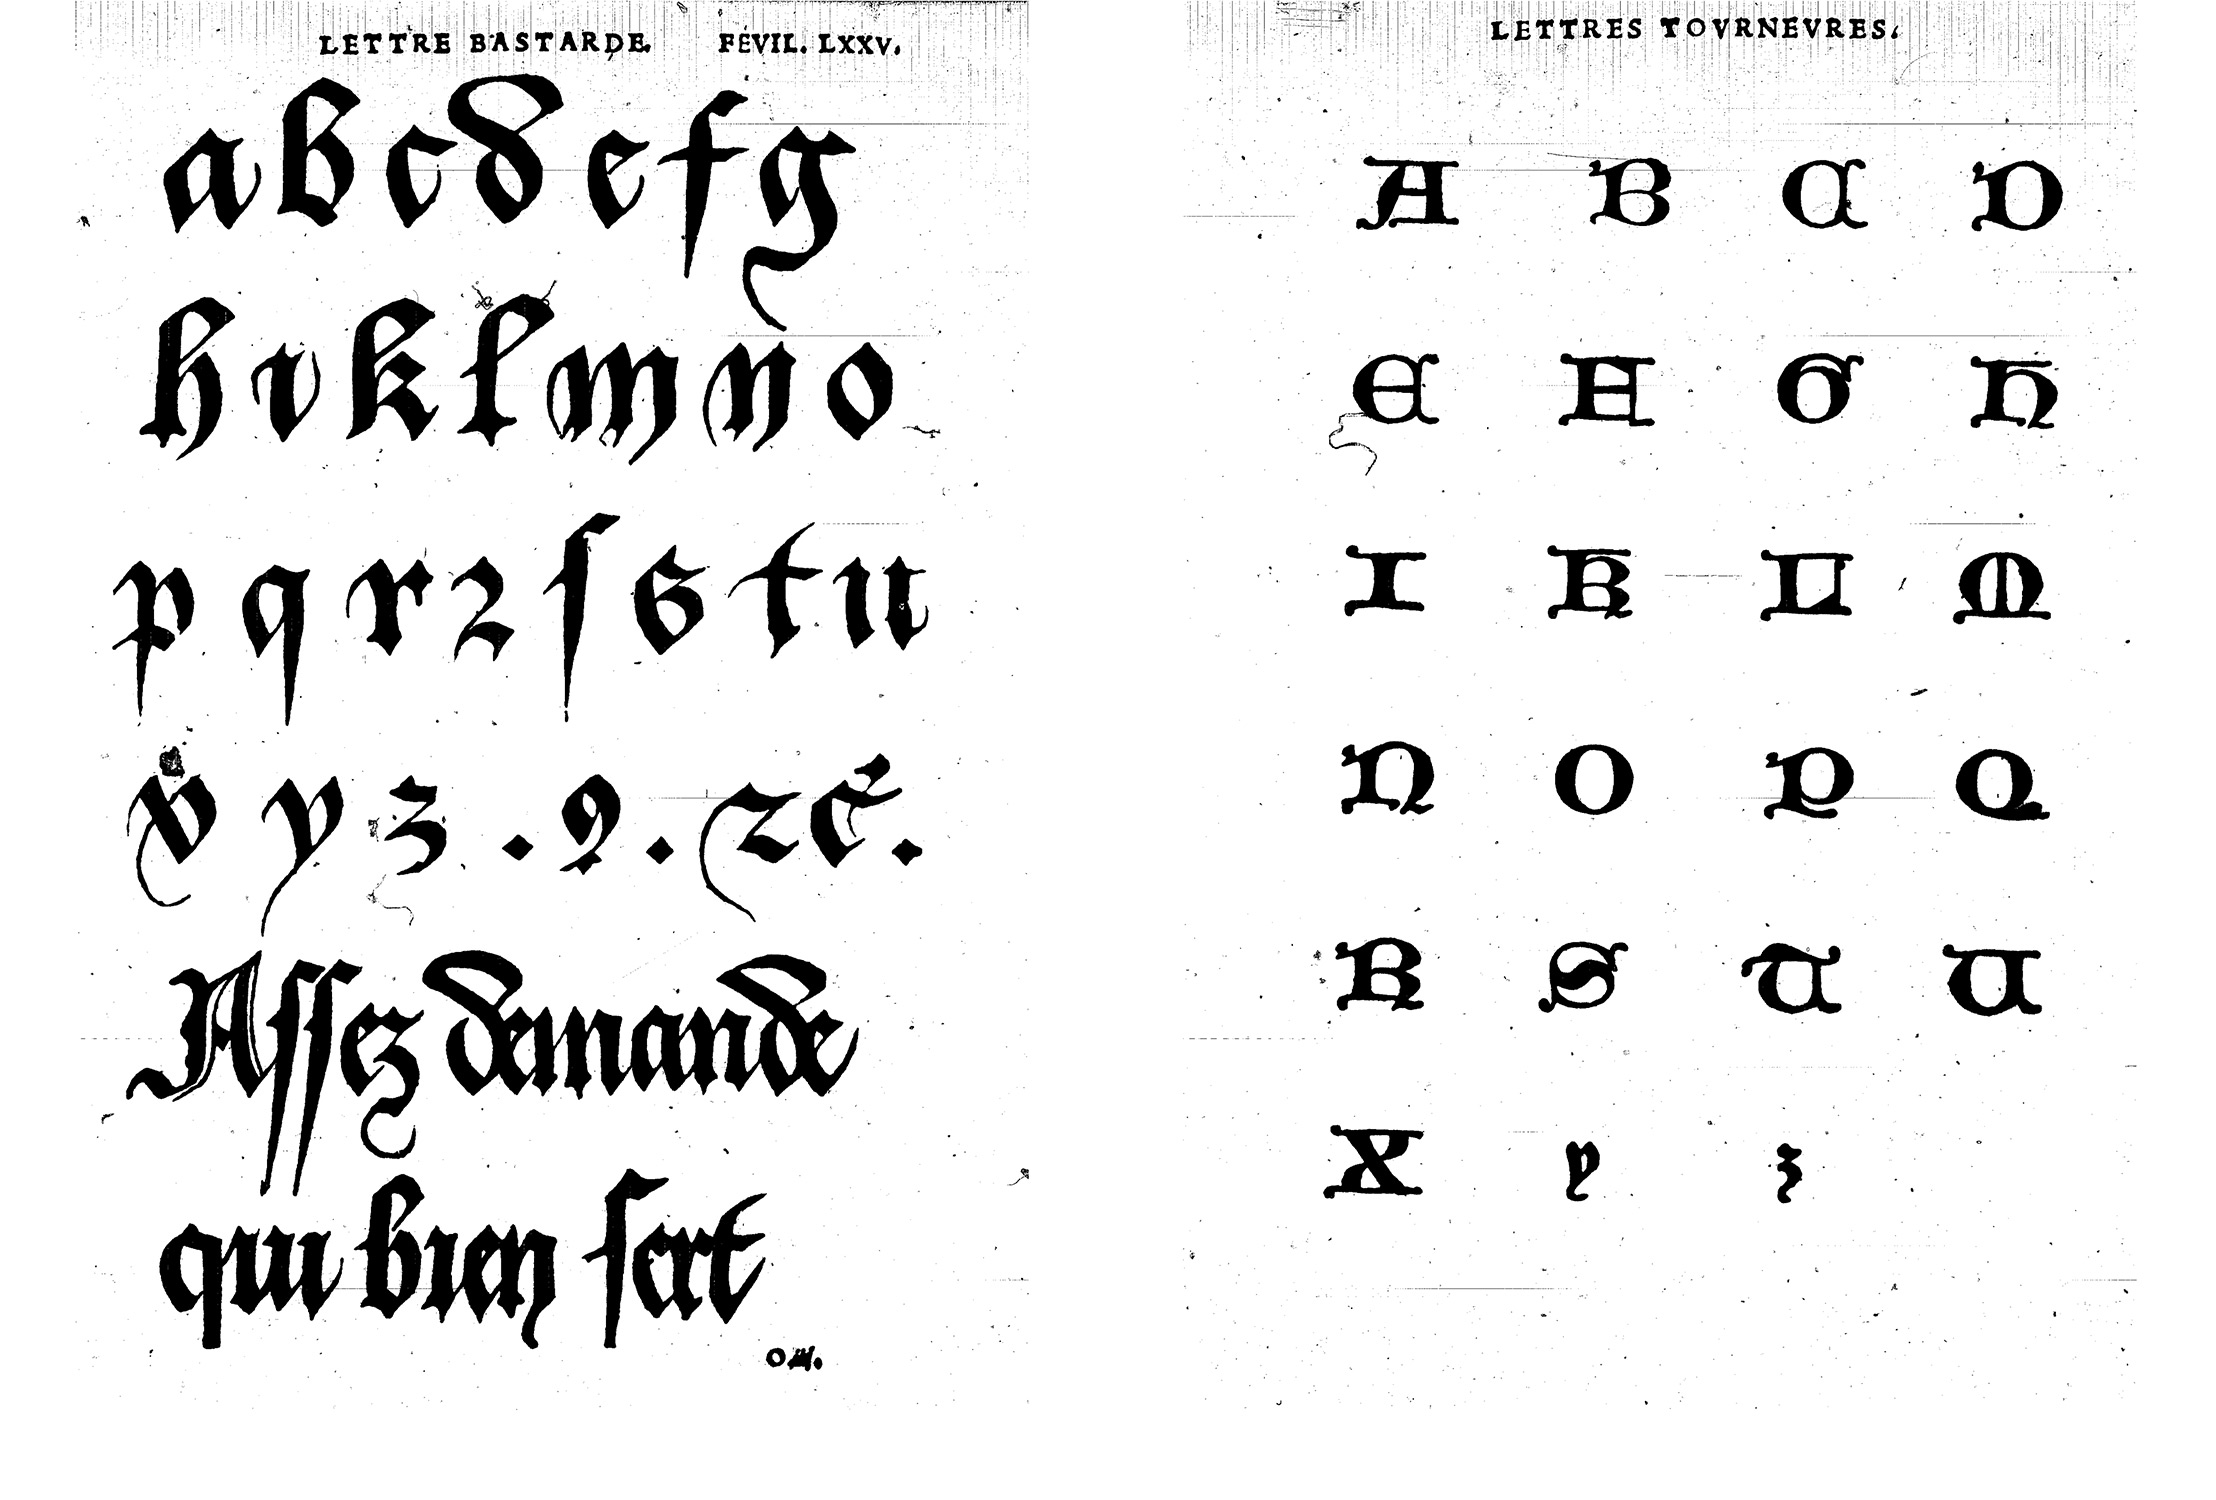 LETTRE BASTARDE. FEVIL. LXXV.
a b c d e f g
h i k l m n o
p q r ꝛ ſ s t u
v y z . ꝯ . ⁊c̃.
Aſſez demande
qui bien ſert
LETTRES TOVRNEVRES.
A B C D
E F G H
I K L M
N O P Q
R S T V
X y z